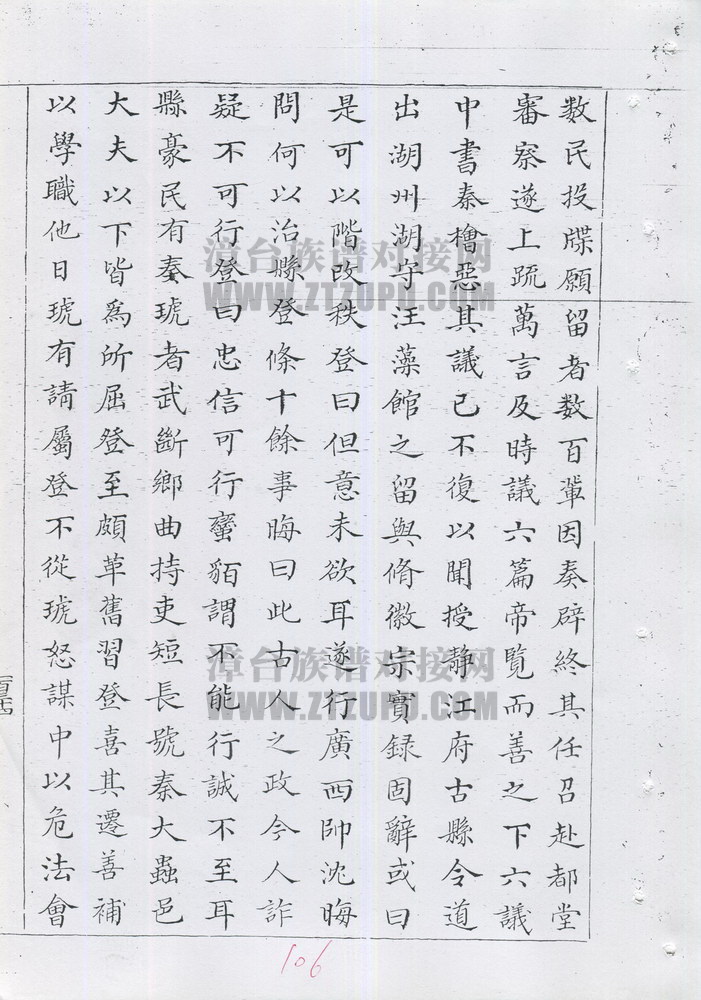 数民投牒願留者数百輩因奏辟終其任召赴都堂
審察遂上疏萬言及時議六篇帝覽而善之下六議
中書秦檜惡其議已不復以聞授静江府古縣令道
出湖州湖守汪藻館之留與脩徽宗實録固辭或曰
是可以階改秩登曰但意未欲耳遂行廣西帥沈晦
問何以治縣登條十餘事晦曰此古人之政今人詐
疑不可行登曰忠信可行蠻貊謂不能行誠不至耳
縣豪民有秦琥者武斷鄉曲持吏短長號秦大蟲邑
大夫以下皆爲所屈登至頗革舊習登喜其遷善補
以學職他日琥有請屬登不從琥怒謀中以危法會
106
漳台族谱对接网
WWW.ZTZUPU.COM
漳台族谱对接网
WWW.ZTZUPU.COM